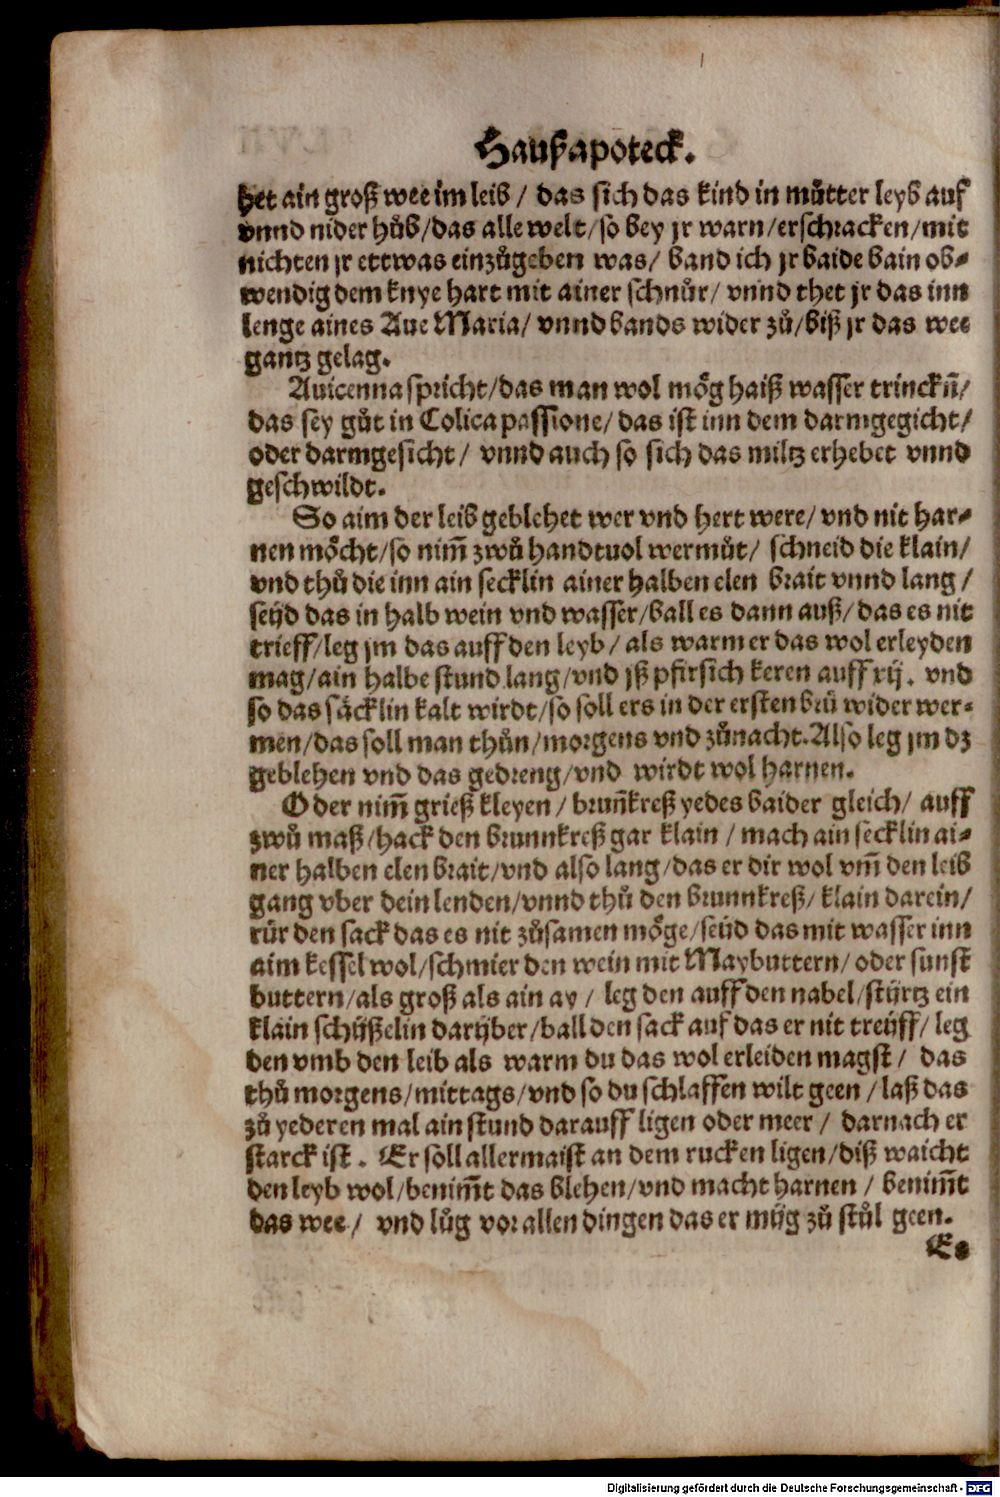 Haußapoteck.
het ain groß wee im leib / das sich das kind in můtter leyb auf
vnnd nider hůb/das alle welt/so bey jr warn/erschracken/mit
nichten jr ettwas einzůgeben was/ band ich jr baide bain ob⸗
wendig dem knye hart mit ainer schnůr/ vnnd thet jr das inn
lenge aines Aue Maria/ vnnd bands wider zů/biß jr das wee
gantz gelag.
Auicenna spricht/das man wol mög haiß wasser trinckn̄/
das sey gůt in Colica passione/ das ist inn dem darmgegicht/
oder darmgesicht/ vnnd auch so sich das miltz erhebet vnnd
geschwildt.
So aim der leib geblehet wer vnd hert were/ vnd nit har⸗
nen möcht/so nim̄ zwů handtuol wermůt/ schneid die klain/
vnd thů die inn ain secklin ainer halben elen brait vnnd lang /
seüd das in halb wein vnd wasser/ball es dann auß/das es nit
trieff/leg jm das auff den leyb / als warm er das wol erleyden
mag/ain halbe stund lang/vnd jß pfirsich keren auff xij. vnd
so das säcklin kalt wirdt/so soll ers in der ersten brü wider wer⸗
men/das soll man thůn/morgens vnd zůnacht. Also leg jm dz
geblehen vnd das gedreng/vnd wirdt wol harnen.
Oder nim̄ grieß kleyen / brun̄kreß yedes baider gleich/ auff
zwů maß/hack den brunnkreß gar klain / mach ain secklin ai⸗
ner halben elen brait/vnd also lang/das er dir wol vm̄ den leib
gang vber dein lenden/vnnd thů den brunnkreß/ klain darein/
rür den sack das es nit zůsamen möge/seüd das mit wasser inn
aim kessel wol/schmier den wein mit Maybuttern/ oder sunst
buttern/als groß als ain ay / leg den auff den nabel/stürtz ein
klain schüßelin darüber/ball den sack auf das er nit treüff/ leg
den vmb den leib als warm du das wol erleiden magst / das
thů morgens/mittags/vnd so du schlaffen wilt geen / laß das
zů yederen mal ain stund darauff ligen oder meer / darnach er
starck ist. Er soll allermaist an dem rucken ligen/diß waicht
den leyb wol/benim̄t das blehen/vnd macht harnen / benim̄t
das wee / vnd lůg vor allen dingen das er müg zů stůl geen.
Es
Digitalisierung gefördert durch die Deutsche Forschungsgemeinschaft - DFG